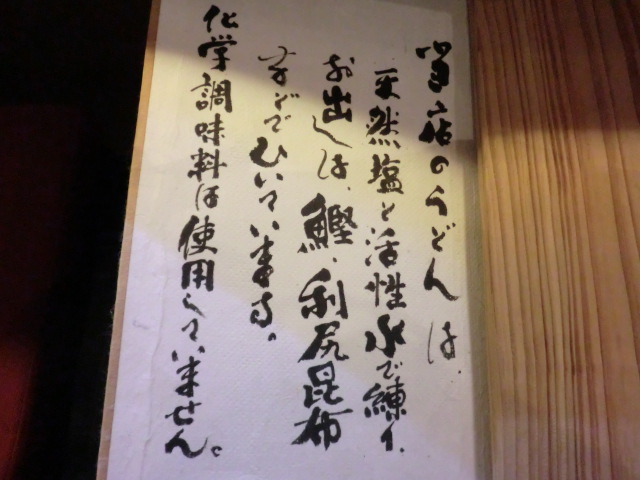 当店のうどんは、
天然塩と活性水で練り、
お出しは、鰹、利尻昆布
などでひいています。
化学調味料は使用していません。